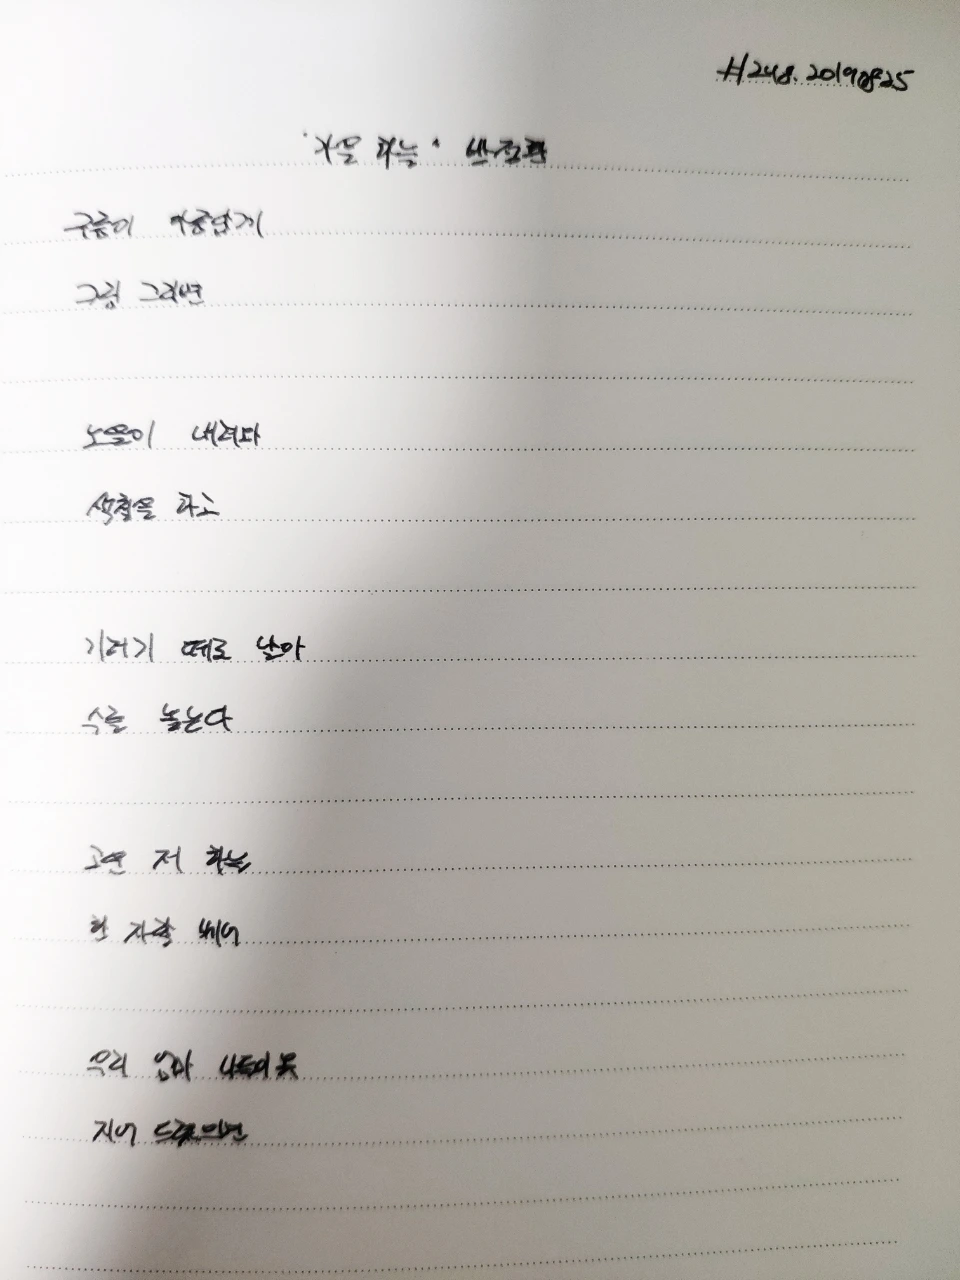 #248. 20190825
'가을 하늘' 박
구름이 아름답게
그림 그리면
노을이 내려와
색칠을 하고
기러기 떼로 날아
수를 놓는다
고운 저 하늘
한 자락 베어
우리 엄마 나들이 옷
지어 드렸으면